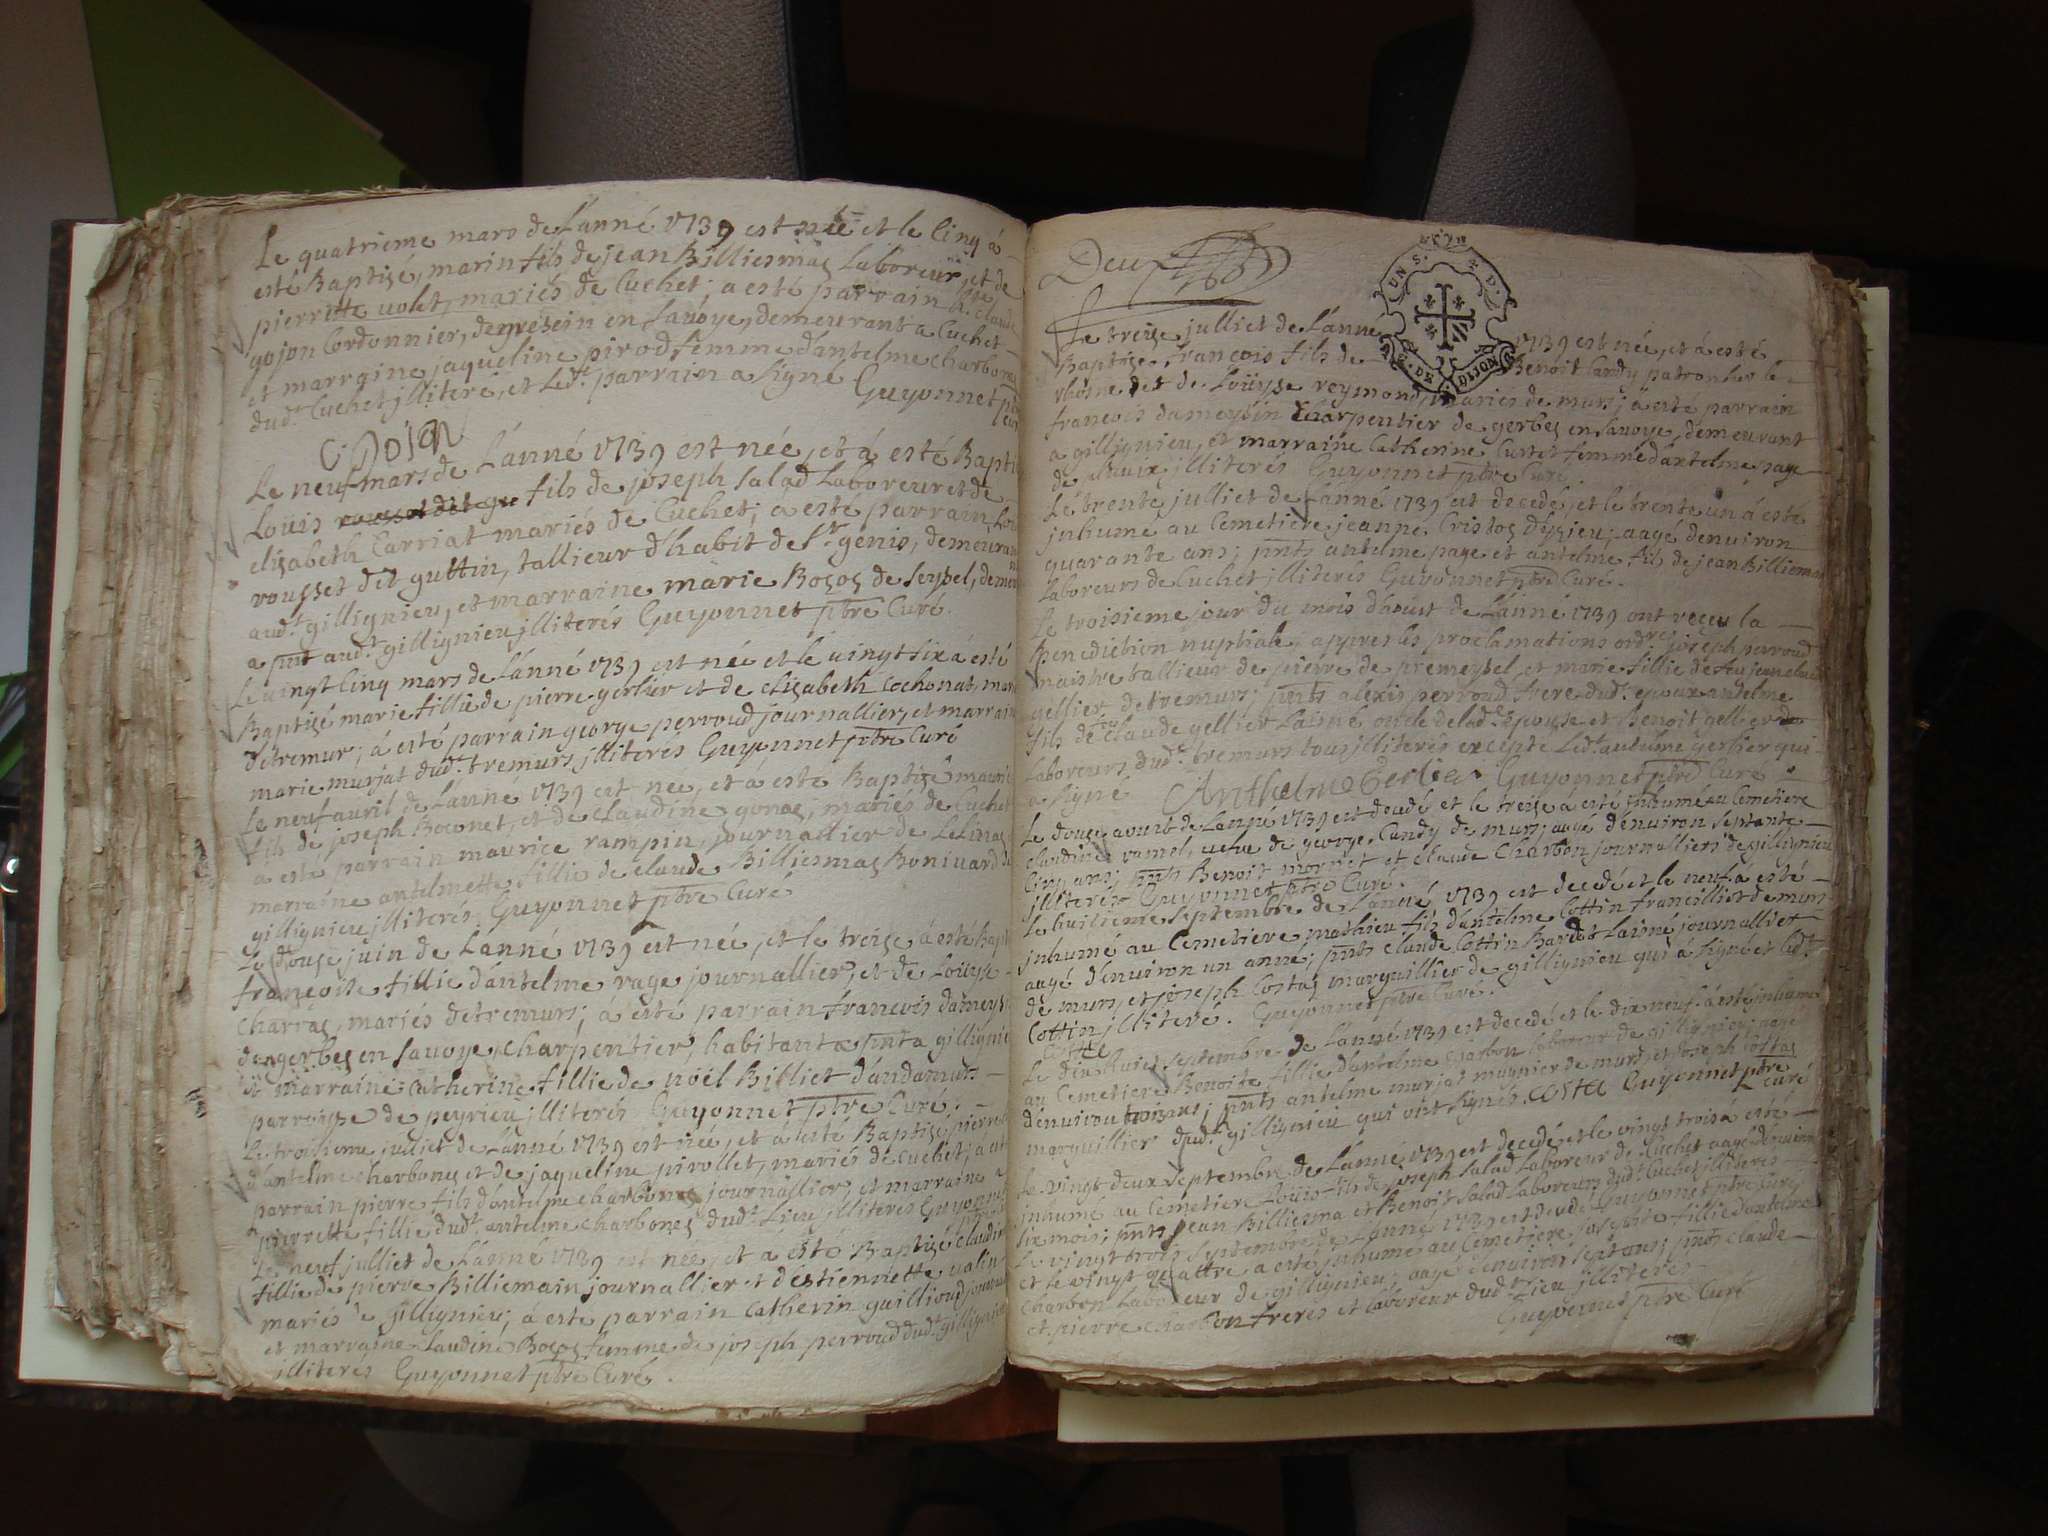 Le quatrieme mars de L'anné 1739 est née et le cinq á
esté Baptisé, marin fils de jean Billiesmas Laboreur, et de
pierrette volet, mariés de Cuchet; a esté parrain claude
gojon Cordonnier, en Savoye, demeurant a Cuchet
et marraine jaqueline pirod femme d'antelme charbon
dud.t Cuchet jlliteré, et Led.t parrain a signé Guyonnet
Le neuf mars de L'anné 1739 est née, et á esté Bapti
Loüis fils de joseph salad Laboreur et de
elizabeth Carriat mariés de Cuchet; a esté parrain
rousset dit guttin, tallieur d'habit de S.t genis, demeuran
aud.t gillignieu, et marraine marie Bozos de seysel, dem
a pnt aud.t gillignieu jlliterés Guyonnet ptre Curé.
Le vingt cinq mars de L'anné 1739 est née et le vingt six á esté
Baptisé marie fillie de pierre gerlier et de elizabeth cochonat, mari
de tremur; á esté parrain george perroud journallier, et marrain
marie murjat dud.t tremurs jlliterés Guyonnet ptre Curé
Le neuf avril de L'anné 1739 est née, et á esté Baptisé mauri
fils de joseph Boconet, et de claudine gonas, mariés de Cuchet
a esté parrain maurice rampin, journallier de Lelinas
marraine antelmette fillie de claude Billiesmas Bonivard de
gillignieu jlliterés Guyonnet ptre Curé
Le douze juin de L'anné 1739 est née, et le treize á esté Bapt
françoise fillie d'antelme rage journallier, et de Loüyse
Charras, mariés de tremurs; á esté parrain francois dameys
de gerbes en savoye, charpentier, habitant a pnt a gillignie
et marraine catherine fillie de noël Billiet d'andamurs
parroisse de peyrieu jlliterés Guyonnet ptre Curé.
Le troisieme julliet de L'anné 1739 est née, et á esté Baptisé pierre
d'antelme charbones et de jaqueline pirollet, mariés de Cuchet; á esté
parrain pierre fils d'antelme charbones journallier, et marraine
pierrette fillie dud.t antelme charbones dud.t Lieu jlliterés Guyonnet
Le neuf julliet de L'anné 1739 est née, et á esté Baptisé claudin
fillie de pierre Billiemain journallier et d'estiennette valin
mariés de gillignieu; á esté parrain Catherin guillioud journal
et marraine claudine Bozos femme de joseph perroud dud.t gillignieu
jlliterés Guyonnet ptre Curé.
Deux
UN S. D.
G. DE DIJON
Le treize julliet de L'anné 1739 est née, et á esté
Baptisé, francois fils de Benoit Candy patron sur le
rhosne et de Loüyse reymond, mariés de murs; á esté parrain
francois dameysin charpentier de gerbes en savoye, demeurant
a gillignieu, et marraine Catherine Curtet femme d'antelme page
de jlliterés Guyonnet ptre Curé.
Le trente julliet de L'anné 1739 est decedé, et le trente un á esté
jnhumé au Cemetiere jeanne Cristos d'yzieu, aagé d'environ
quarante ans; pnts antelme page et antelme fils de jean Billiemas
Laboreurs de Cuchet jlliterés Guyonnet ptre Curé.
Le troisieme jour du mois d'aoust de L'anné 1739 ont reçeu la
Benediction nuptiale, appres les proclamations ord.res joseph perroud
maistre tallieur de pierre de premeysel et marie fillie de feu
gellier de tremurs; pnts alexis perroud frere dud.t epoux antelme
fils de claude gellier Laisné oncle de lad.e Epouse et Benoit gellier
Laboreurs dud.t tremurs tous jlliterés excepté Led.t antelme gerlier qui
a signé Anthelme Gerlier Guyonnet ptre Curé
Le douze aoust de L'anné 1739 est decedé et le treize á esté jnhumé au Cemetiere
claudine ramel, vefve de george Candy de murs, aagé d'environ septante
cinq ans; pnts Benoit mornet et claude Charbon journalliers de gillignieu
jlliterés Guyonnet ptre Curé.
Le huitieme septembre de L'anné 1739 est decedé et le neuf á esté
jnhumé au Cemetiere mathieu fils d'antelme Cottin francilliet de murs
aagé d'environ un anné; pnts claude Cottin Bardot Laisné journalliet
de murs, et joseph Costaz marguillier de gillignieu qui á signé et Led.t
Cottin jlliteré. Guyonnet ptre Curé.
costaz
Le dix huit septembre de L'anné 1739 est decedé et le dix neuf á esté jnhumé
au Cemetiere Benoite fillie d'antelme charbon Laboreur de gillignieu aagé
d'environ trois ans; pnts antelme murjat mugnier de murs, et joseph costaz
marguillier dud.t gillignieu qui ont signés. costaz Guyonnet ptre Curé
Le vingt deux septembre de L'anné 1739 est decedé et le vingt trois á esté
jnhumé au Cemetiere Loüis fils de joseph salad Laboreur de Cuchet aagé d'environ
six mois; pnts jean Billiesma et Benoit salad Laboreurs dud.t Cuchet jlliterés
Le vingt trois septembre de L'anné 1739 est decedé Guyonnet ptre Curé
et le vingt quattre a esté jnhumé au Cemetiere fillie d'antelme
charbon Laboreur de gillignieu, aagé d'environ sept ans; pnts claude
et pierre charbon freres et laboreur dud.t Lieu jlliterés
Guyonnet ptre Curé